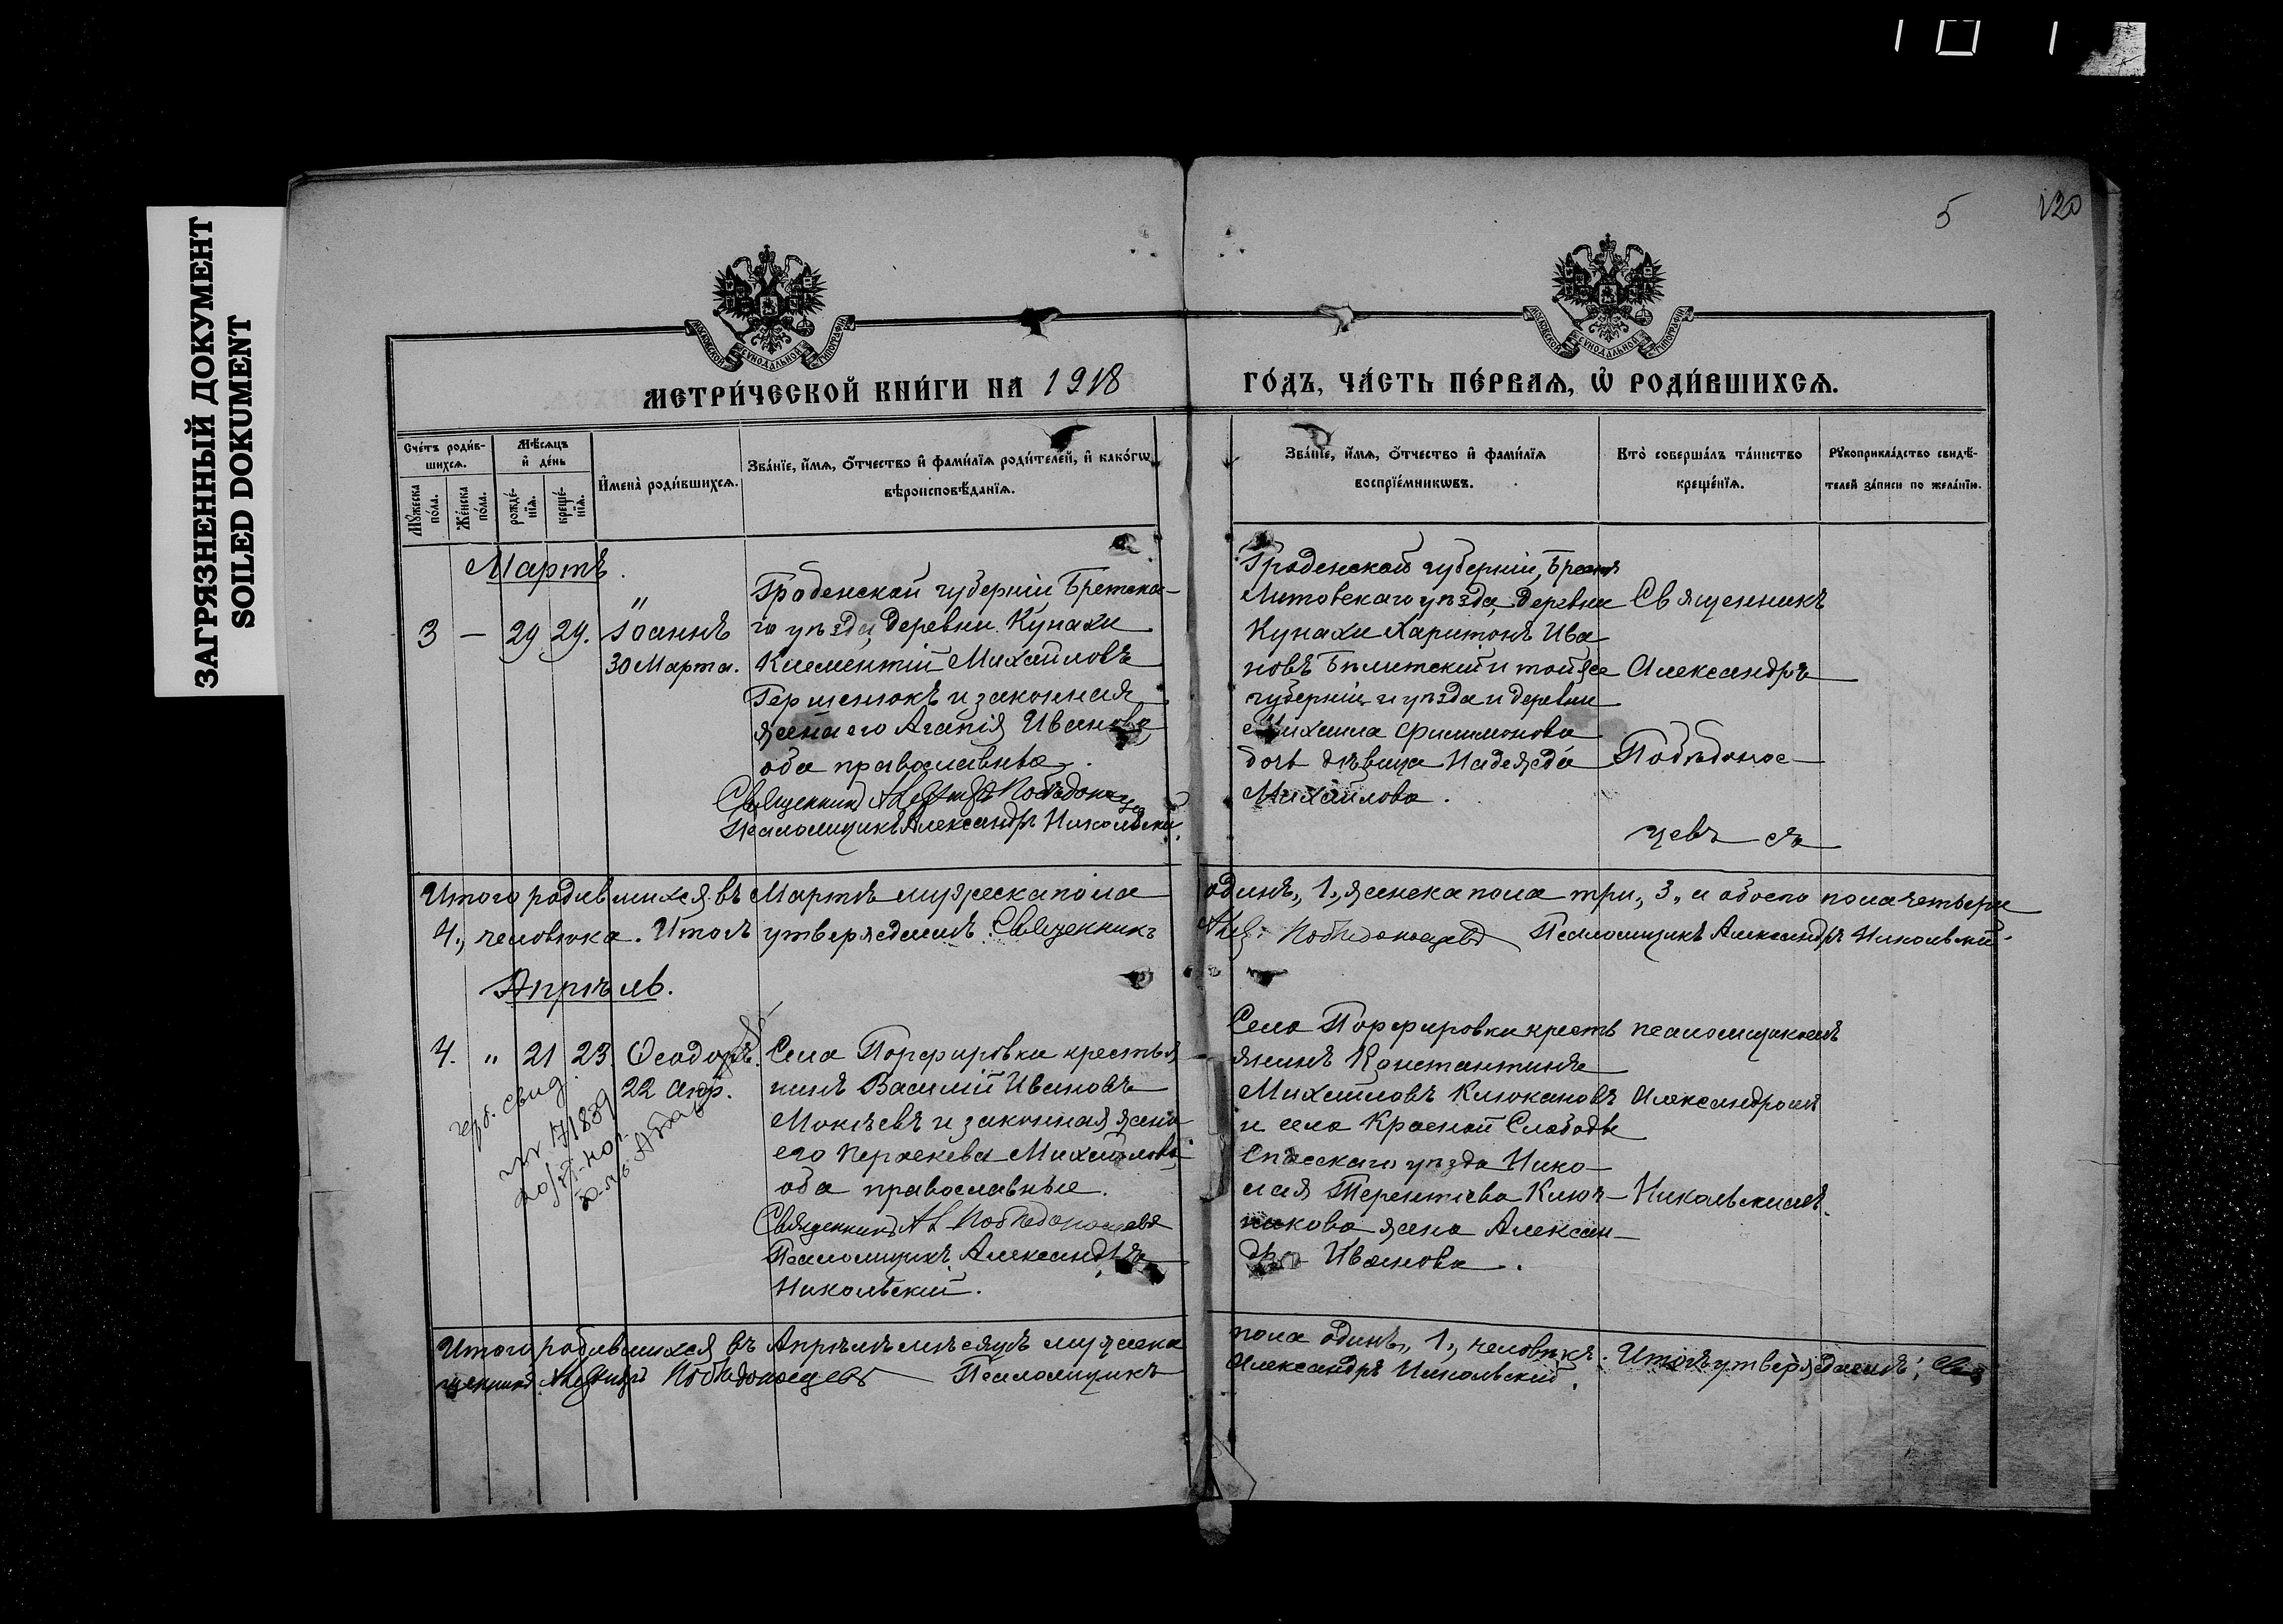 ЗАГРЯЗНЕННЫЙ ДОКУМЕНТ
SOILED DOKUMENT
5
120
МОСКОВСКОЙ СУНОДАЛЬНОЙ ТИПОГРАФІИ
МОСКОВСКОЙ СУНОДАЛЬНОЙ ТИПОГРАФІИ
МЕТРИ́ЧЕСКОЙ КНИ́ГИ НА 1918
ГО́ДЪ, ЧА́СТЬ ПЕ́РВАѦ, Ѡ҆ РОДИ́ВШИХСѦ.
Сче́тъ роди́в-
шихсѧ.
Мѣ́сѧцъ
и҆ де́нь
Мꙋ́жеска
по́ла.
Же́нска
по́ла.
рожде́-
нїѧ.
креще́-
нїѧ.
И҆мена̀ роди́вшихсѧ.
Зва́нїе, и҆́мѧ, ѻ҆́тчество и҆ фами́лїѧ роди́телей, и҆ како́гѡ
вѣроисповѣ́данїѧ.
Зва́нїе, и҆́мѧ, ѻ҆́тчество и҆ фами́лїѧ
воспрїе́мникѡвъ.
Кто̀ соверша́лъ та́инство
креще́нїѧ.
Рꙋкоприкла́дство свидѣ́-
телей за́писи по жела́нїю.
Мартъ.
3 — 29 29. Іоаннъ
30 Марта.
Гродненской губерніи Бретска-
го уѣзда, деревни Кунахи
Климентій Михаиловъ
Гершенюкъ и законная
жена его Агапія Иванова,
оба православные.
Священник Александръ Победоносцев
Псаломщикъ Александръ Никольскій.
Гродненской губерніи, Брест
Литовскаго уѣзда, деревни
Кунахи Харитонъ Ива
новъ Бѣлитскій и той же
губерніи и уѣзда и деревни
Михаила Филимонова
дочь дѣвица Надежда
Михаилова.
Священникъ
Александръ
Побѣдонос-
цевъ съ
Итого родившихся въ Мартѣ мужеска пола
одинъ, 1, женска пола три, 3, и обоего пола четыре
4, человѣка. Итогъ утверждаемъ: Священникъ
Алек. Победоносцевъ Псаломщикъ Александръ Никольскій.
Апрѣль.
4. " 21 23. Ѳеодоръ.
22 Апр.
Села Порфировки крестья
нинъ Василій Ивановъ
Мокѣевъ и законная жена
его Параскева Михаилова,
оба православные.
Священникъ Ал. Победоносцевъ
Псаломщикъ Александръ
Никольскій.
Села Порфировки кресть
янинъ Константинъ
Михаиловъ Клюкановъ
и села Красной Слободы
Спасскаго уѣзда Нико
лая Терентіева Ключ-
никова жена Алексан-
дра Иванова.
псаломщикомъ
Александромъ
Никольскимъ.
Итого родившихся въ Апрѣлѣ мѣсяцѣ мужеска
пола одинъ, 1, человѣкъ. Итогъ утверждаемъ: Свя
щенникъ Александръ Победоносцевъ Псаломщикъ
Александръ Никольскій.